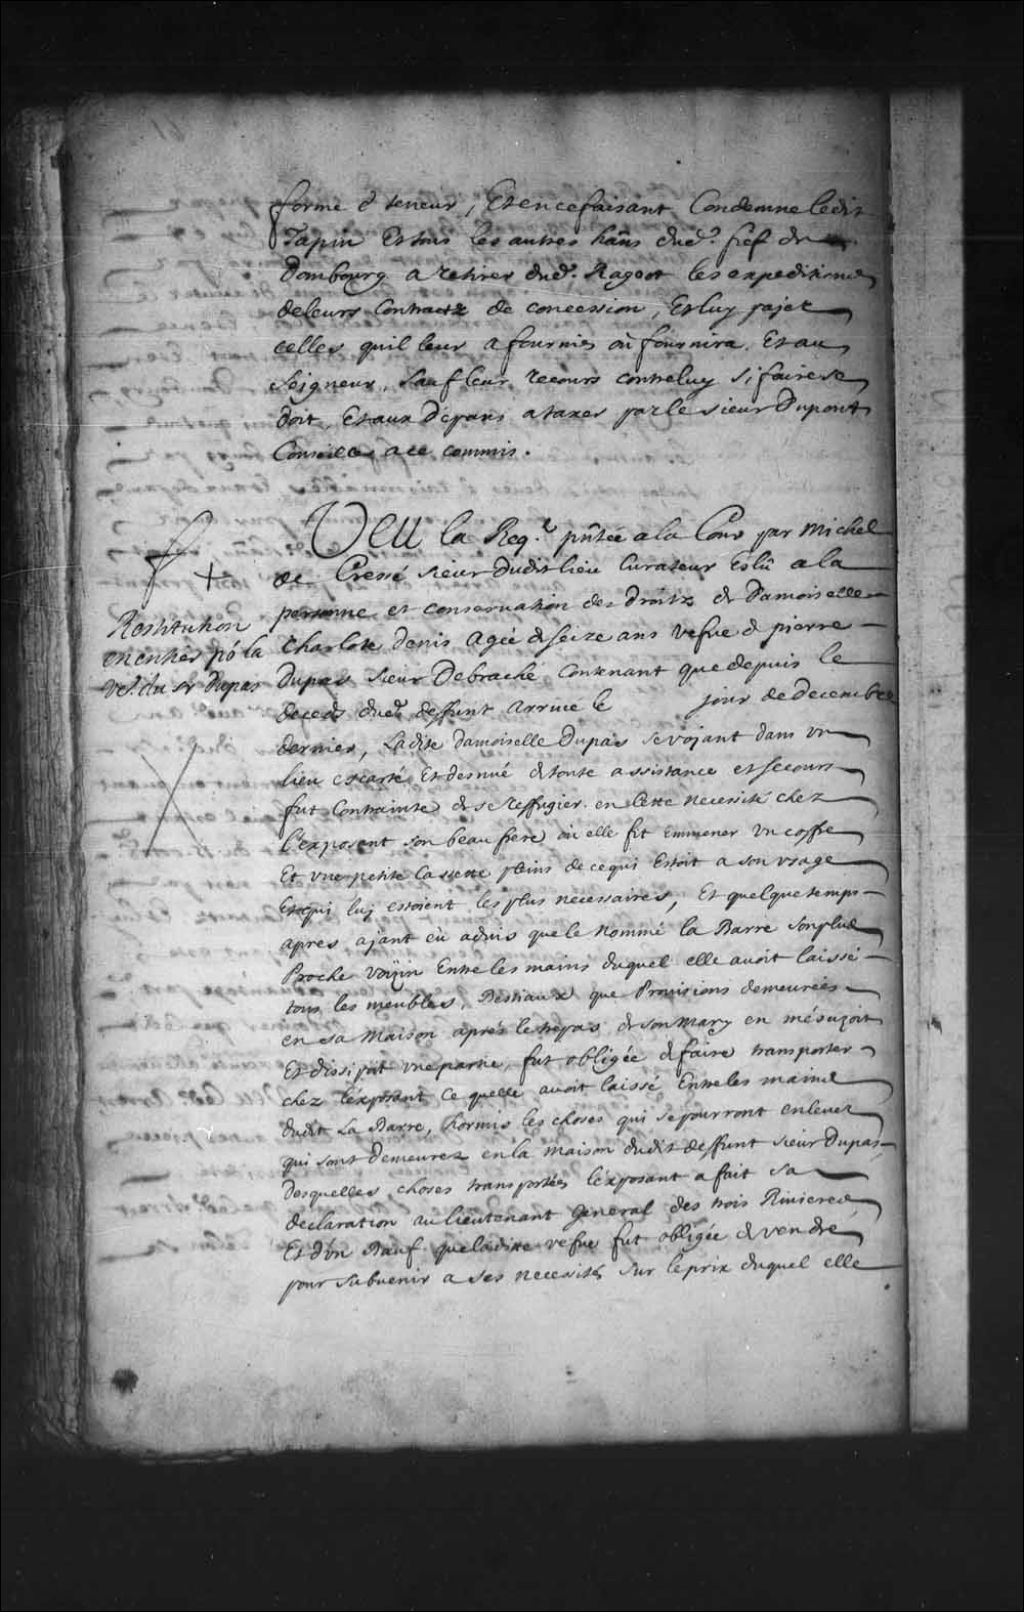 forme & teneur, Et en ce faisant Condemne ledit
Tapin Et tous les autres hãns dud.t fief de
Dombourg a retirer dud.t Rageot les expeditions
de leurs Contractz de concession, Et luy payer
celles quil leur a fournies oû fournira. Et au
Seigneur, Sauf leur recours contre luy si faire se
doit, Et aux Dépans a taxer par le sieur Dupont
Conseiller a ce commis.
Restitution
en entier põ la
vef. du sr Dupas
VEU la Req.te pñtée a la Cour par Michel
de Cressé sieur dudit lieu Curateur Eslû a la
personne et conservation des droitz de Damoiselle
Charlote Denis agée de seize ans vefve de pierre
Dupas sieur De braché Contenant que depuis le
deceds dud.t deffunt arrivé le jour de decembre
dernier, Ladite damoiselle Dupas se voyant dans un
lieu escarté Et desnué de toute assistance et secours
fut Contrainte de se reffugier en cette necessité chez
l'exposant son beau frere oû elle fit emmener un coffre
Et une petite Cassette pleins de ce qui Estoit a son usage
Et qui luy estoient les plus necessaires, Et quelque temps
apres ajant eû advis que le nommé la Barre son plus
Proche voisin Entre les mains duquel elle avoit laissé
tous les meubles, Bestiaux que Provisions demeureés
en sa Maison aprés le trepas de son Mary en mésuzoit
Et dissipoit une partie, fut obligée de faire transporter
chez l'exposant ce quelle avoit laissé Entre les mains
dudit La Barre, hormis les choses qui se pourront enlever
qui sont demeurez en la maison dudit deffunt sieur Dupas,
desquelles choses transportées l'exposant a fait sa
declaration au lieutenant general des trois Rivieres
Et d'ũn Bœuf que ladite vefve fut obligée de vendre
pour subvenir a ses necessités sur le prix duquel elle